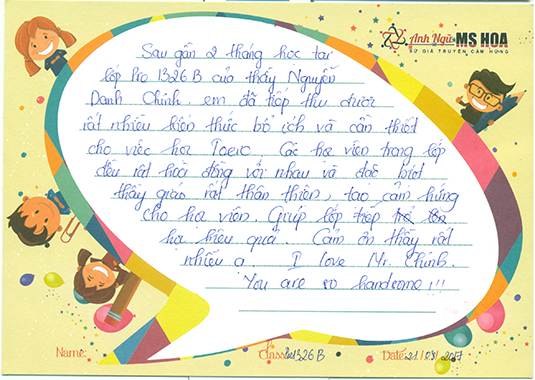 Anh Ngữ MS HOA
SỨ GIẢ TRUYỀN CẢM HỨNG
Sau gần 2 tháng học tại
lớp Pro 1326B của thầy Nguyễn
Danh Chính. em đã tiếp thu được
rất nhiều kiến thức bổ ích và cần thiết
cho việc học Toeic. Các học viên trong lớp
đều rất hoà đồng với nhau và đặc biệt
thầy giáo rất thân thiện, tạo cảm hứng
cho học viên. Giúp lớp tiếp
học hiệu quả. Cảm ơn thầy rất
nhiều ạ. I love Mr. Chính.
You are so handsome!!!
Name:
Class: Pro1326B
Date: 21/08/2017